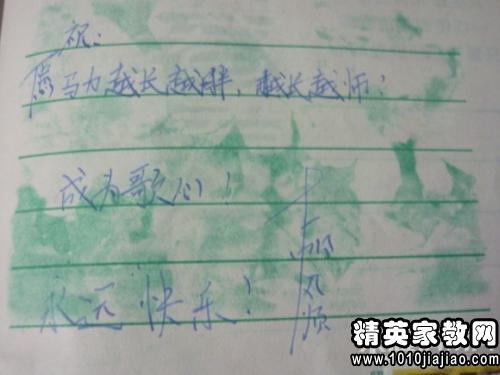 祝:
马力越长越胖,越长越师!
成为歌们!
永远快乐!
一帆风顺
精英家教网
www.1010jiajiao.com